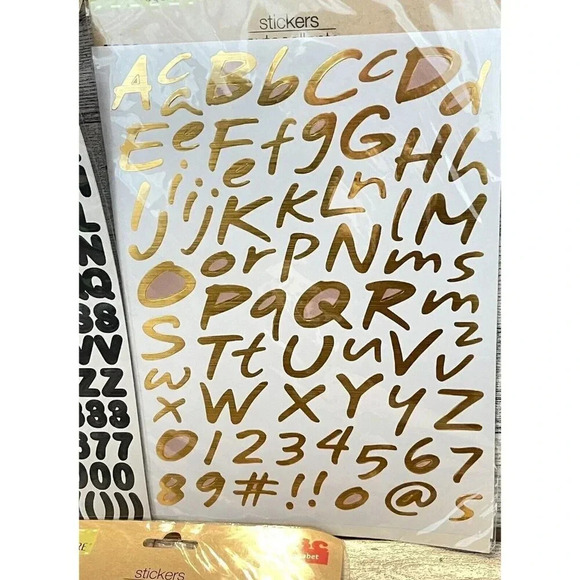 stickers
A c a B b C c D d
E e F e f g G H h
I J i i j K k L n l M
O o r p N m s
P q Q R m
S T t U u V v z
w x W X Y y Z
0 1 2 3 4 5 6 7
8 9 # ! ! o @ s
L
N
Q
88
W
ZZ
888
377
000
()))
stickers